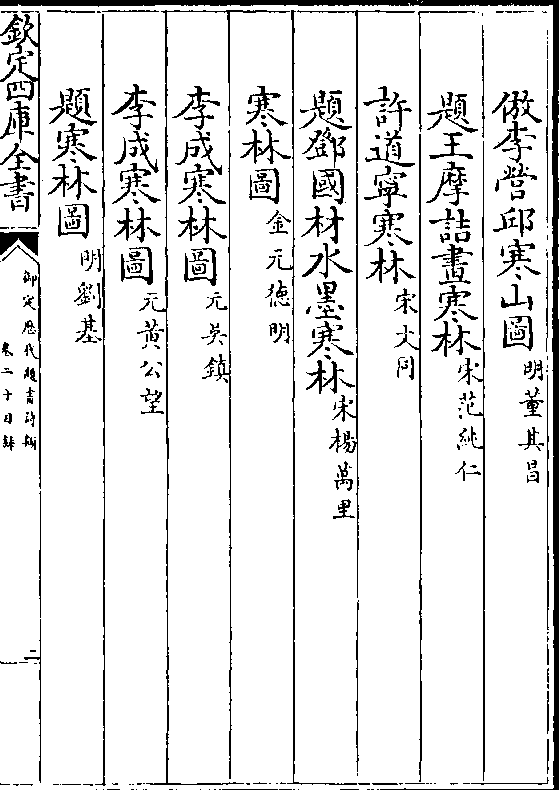 倣李營邱寒山圖 明董其昌
題王摩詰畫寒林 宋范純仁
許道寧寒林 宋文同
題鄧國材水墨寒林 宋楊萬里
寒林圖 金元德明
李成寒林圖 元吳鎮
李成寒林圖 元黃公望
題寒林圖 明劉基
欽定四庫全書
御定歷代題畫詩類
卷二十目錄
二